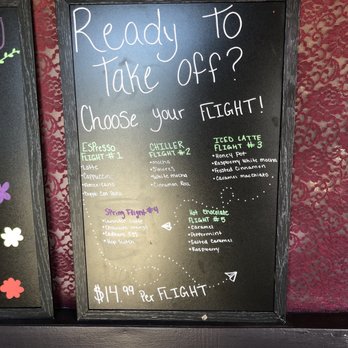 Ready to
take off?
Choose your FLIGHT!
Espresso
FLIGHT #1
• Latte
• Cappuccino
• Americano
CHILLER
FLIGHT #2
• Mocha
• S'mores
• White Mocha
• Cinnamon Roll
ICED LATTE
FLIGHT #3
• Honey Pot
• Raspberry White Mocha
• Frosted Cinnamon
• Caramel Macchiato
Spring Flight #4
• Lavender
Hot Chocolate
FLIGHT #5
• Caramel
• Peppermint
• Salted Caramel
• Raspberry
$14.99 Per FLIGHT